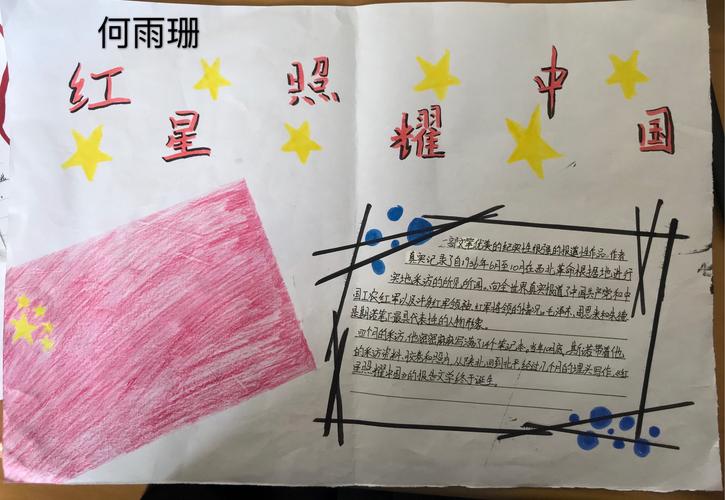 何雨珊
红星照耀中国
一部文笔优美的纪实性很强的报道性作品。作者
真实记录了自1936年6月至10月在西北革命根据地进行
实地采访的所见所闻。向全世界真实报道了中国共产党和中
国工农红军以及许多红军领袖,红军将领的情况。毛泽东、周恩来和朱德
是斯诺笔下最具代表性的人物形象。
四个月的采访,他密密麻麻写满了14个笔记本。当年10月底,斯诺带着他
的采访资料、胶卷和照片,从陕北回到北平,经过几个月的埋头写作,《红
星照耀中国》的报告文学终于诞生。